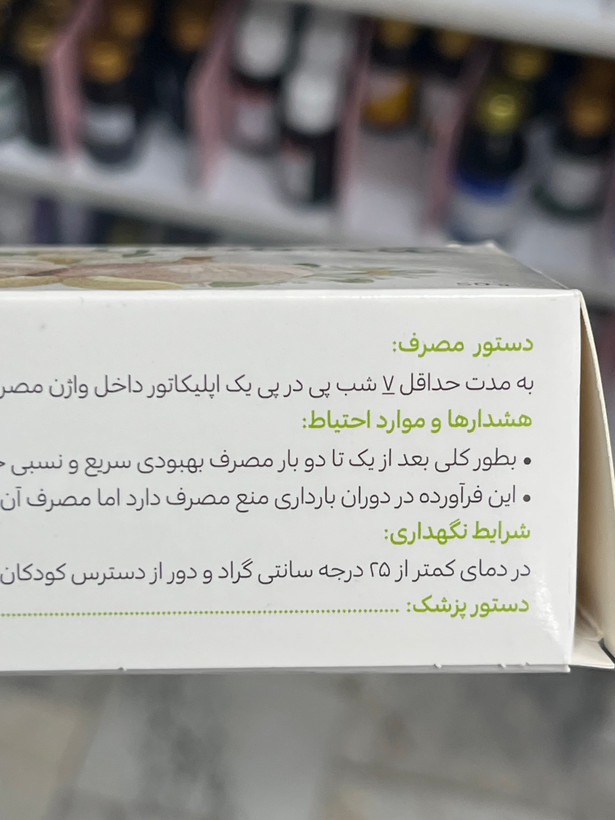 دستور مصرف:
به مدت حداقل ۷ شب پی در پی یک اپلیکاتور داخل واژن
هشدارها و موارد احتیاط:
• بطور کلی بعد از یک تا دو بار مصرف بهبودی سریع و نسبی
• این فرآورده در دوران بارداری منع مصرف دارد اما مصرف آن
شرایط نگهداری:
در دمای کمتر از ۲۵ درجه سانتی گراد و دور از دسترس کودکان
دستور پزشک: